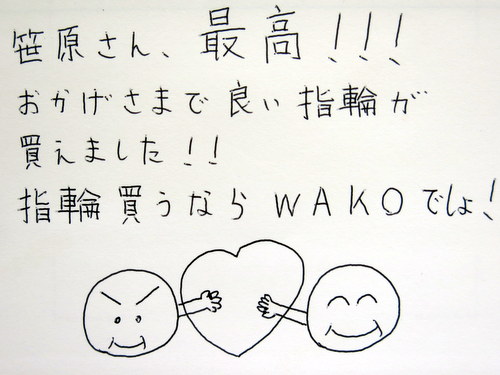 笹原さん、最高!!!
おかげさまで良い指輪が
買えました!!
指輪買うならWAKOでしょ!